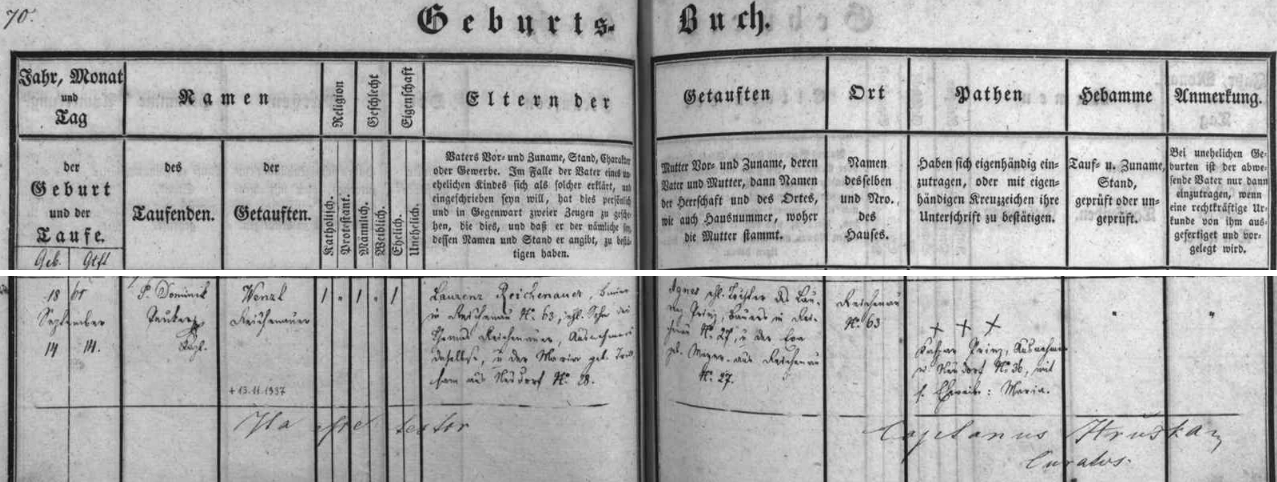 70.
Geburts-
Buch.
Jahr, Monat
und
Tag
Namen
Religion
Geschlecht
Eigenschaft
Eltern der
Getauften
Ort
Pathen
Hebamme
Anmerkung.
der
Geburt
und der
Taufe.
Geb. Getft
des
Taufenden.
der
Getauften.
Katholisch.
Protestant.
Männlich.
Weiblich.
Ehelich.
Unehelich.
Vaters Vor- und Zuname, Stand, Charakter
oder Gewerbe. Im Falle der Vater eines un-
ehelichen Kindes sich als solcher erklärt, und
eingeschrieben seyn will, hat dies persönlich
und in Gegenwart zweier Zeugen zu gesche-
hen, die dies, und daß er der nämliche sey,
dessen Namen und Stand er angibt, zu bestä-
tigen haben.
Mutter Vor- und Zuname, deren
Vater und Mutter, dann Namen
der Herrschaft und des Ortes,
wie auch Hausnummer, woher
die Mutter stammt.
Namen
desselben
und Nro.
des
Hauses.
Haben sich eigenhändig ein-
zutragen, oder mit eigen-
händigen Kreuzzeichen ihre
Unterschrift zu bestätigen.
Tauf- u. Zuname,
Stand,
geprüft oder un-
geprüft.
Bei unehelichen Ge-
burten ist der abwe-
sende Vater nur dann
einzutragen, wenn
eine rechtkräftige Ur-
kunde von ihm aus-
gefertiget und vor-
gelegt wird.
18
September
14 14.
P. Dominik
Wenzl
Reichenauer
+ 13.11.1937
1 1 1
Laurenz Reichenauer,
in Reichenau N. 63, ehl. Sohn des
Thomas Reichenauer, Ausnehmers
daselbst, u der Maria geb.
aus Neudorf N. 28.
Agnes ehl. Tochter des
Prinz, Bauers in Rei-
N. 27, u der
geb. Mayer aus Reichenau
N. 27.
Reichenau
N. 63
+ + +
Kaspar Prinz, Ausnehmer
in Neudorf N. 36, mit
s. Eheweib: Maria.
testor
Hruška
Curatus.